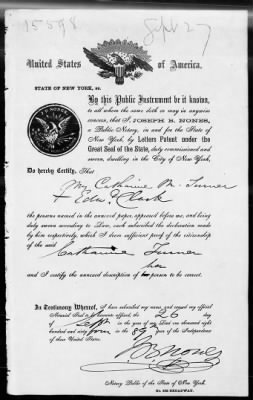 15598 Sept 27
United States of America.
STATE OF NEW YORK, ss.
By this Public Instrument be it known,
to all whom the same doth or may in anywise
concern, that I, JOSEPH B. NONES,
a Public Notary, in and for the State of
New York, by Letters Patent under the
Great Seal of the State, duly commissioned and
sworn, dwelling in the City of New York,
Do hereby Certify, That
Mrs Catharine M. Turner
+ Edw. Clark
the persons named in the annexed paper, appeared before me, and being
duly sworn according to Law, each subscribed the declaration made
by them respectively, which I deem sufficient proof of the citizenship
of the said
Catharine Turner
her
and I certify the annexed description of person to be correct.
In Testimony Whereof, I have subscribed my name, and caused my official
Notarial Seal to be hereunto affixed, the 26 day
of Sept in the year of our Lord one thousand eight
hundred and sixty four in the 89th of the Independence
of these United States.
J B Nones
Notary Public of the State of New York.
BROADWAY.